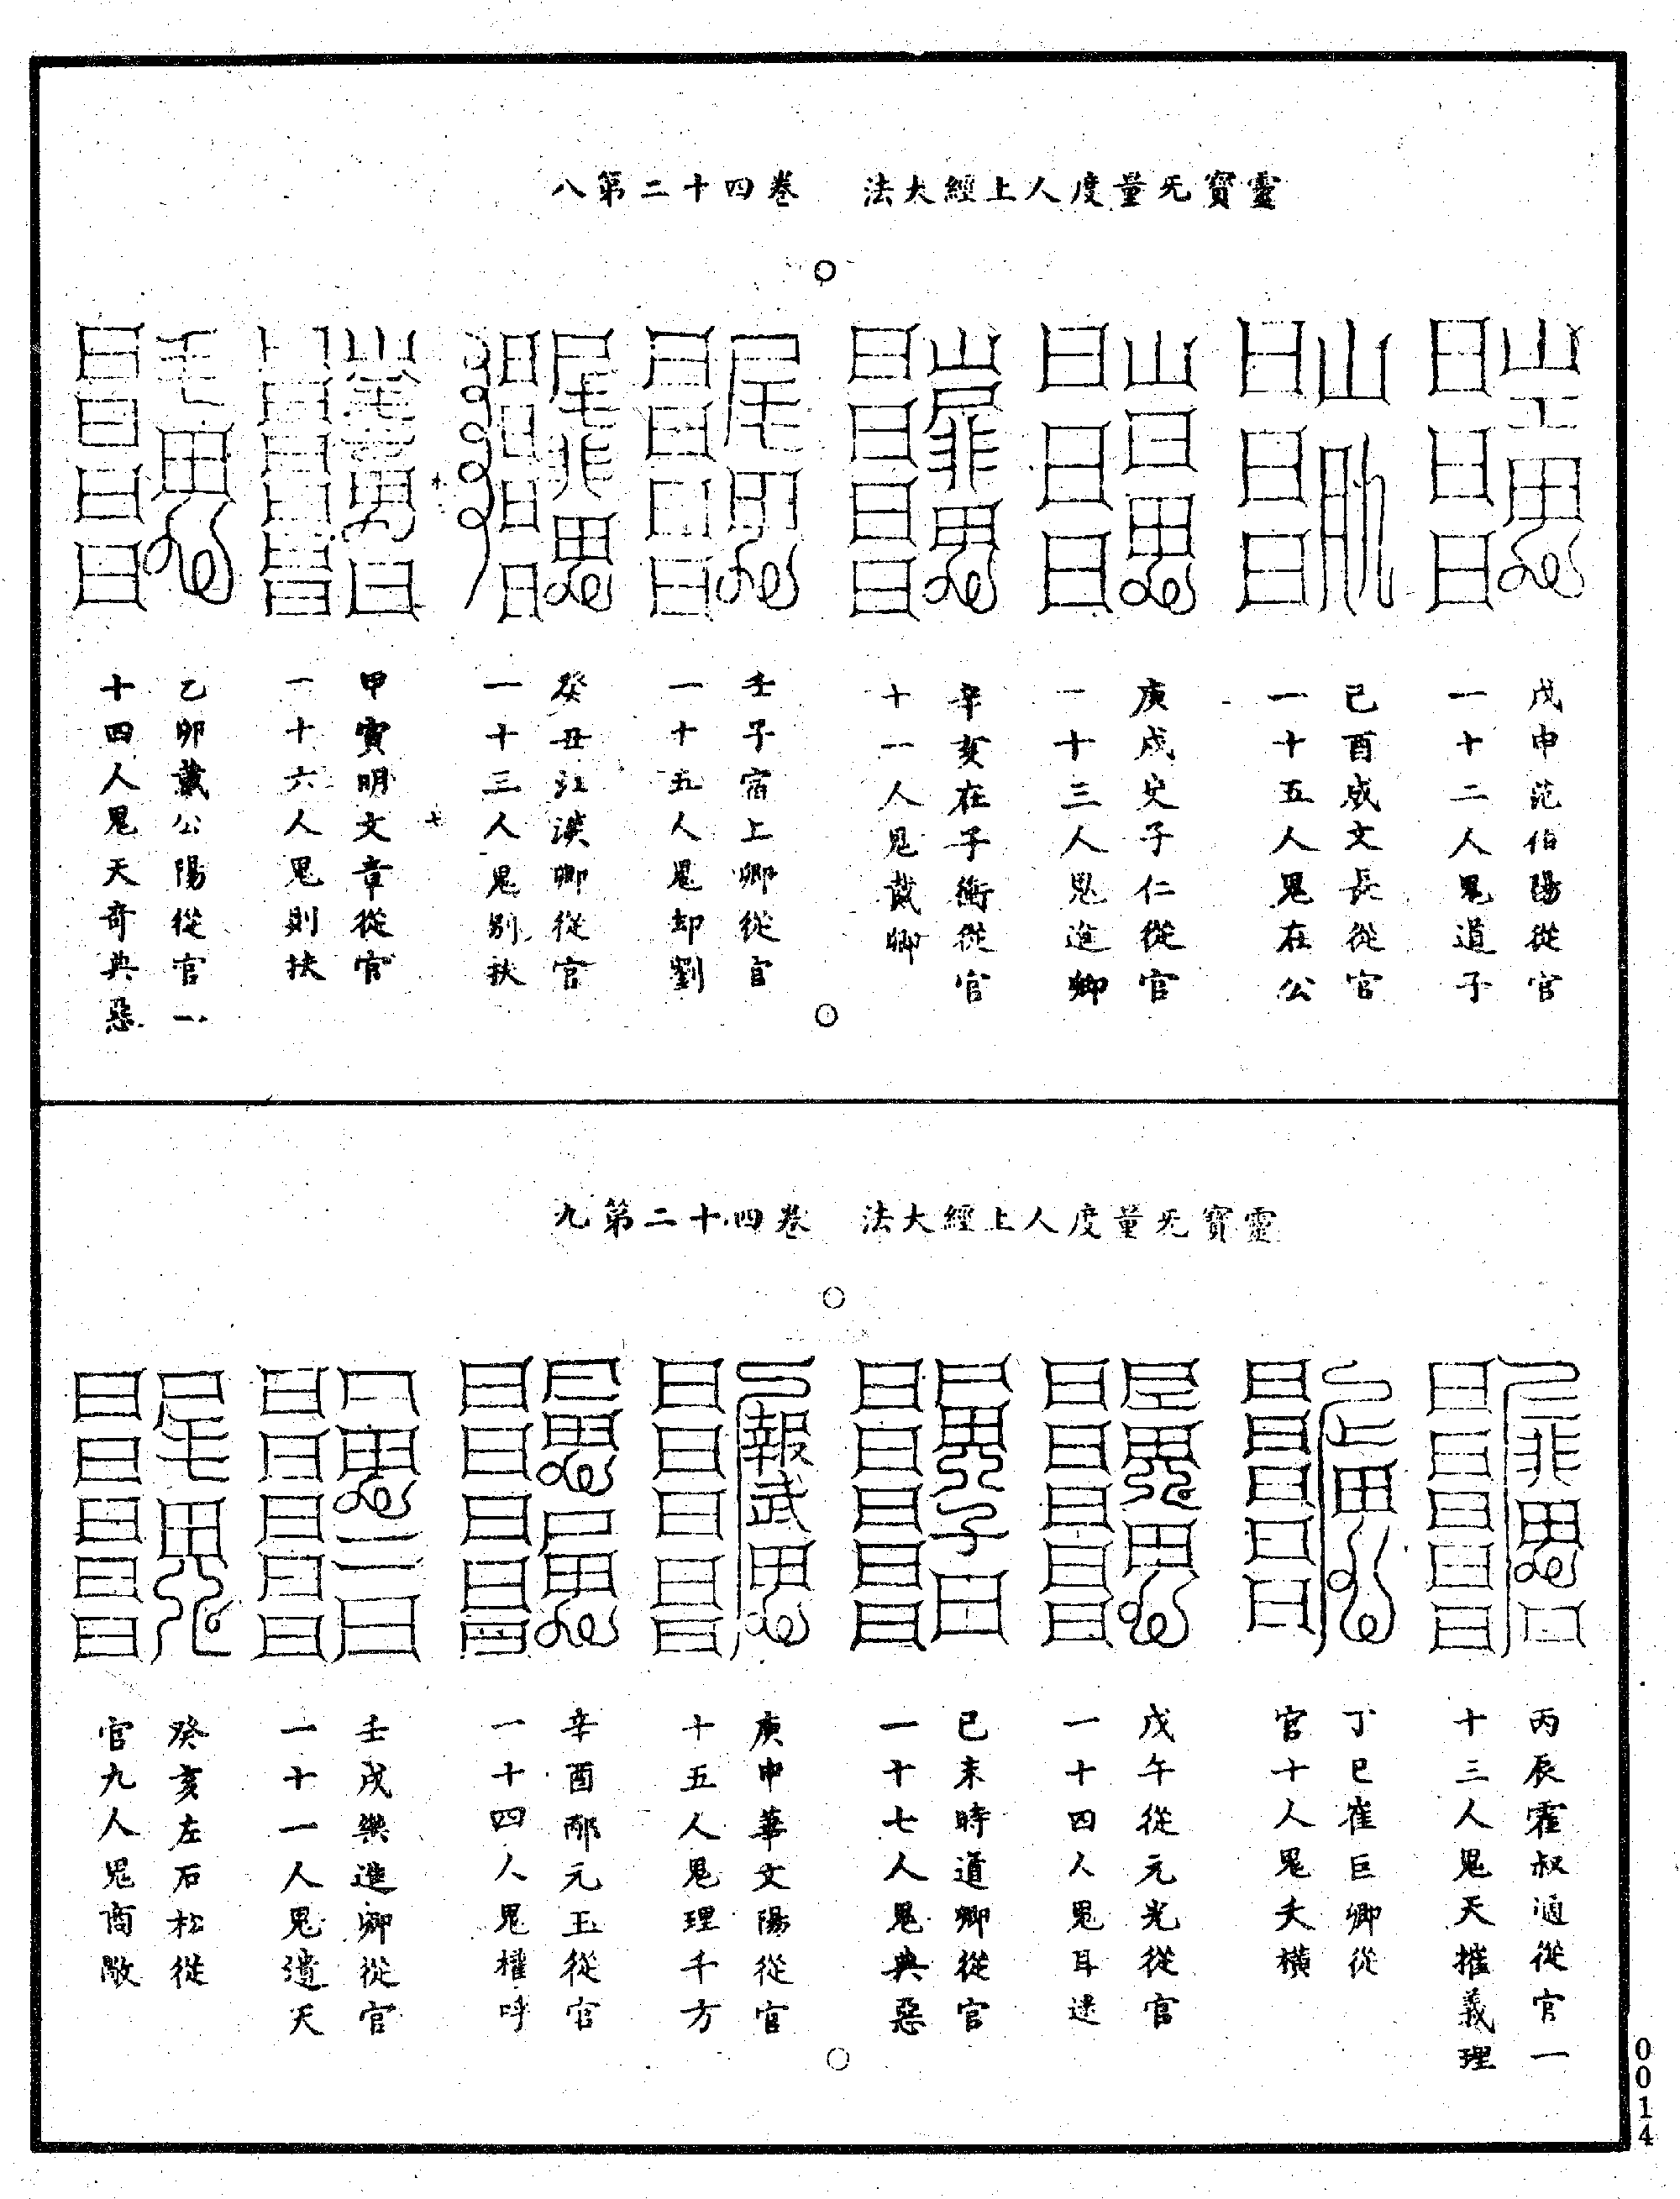 靈寶无量度人上經大法　卷四十二第八
戊申范伯陽從官
一十二人鬼道子
己酉成文長從官
一十五人鬼在公
庚戌史子仁從官
一十三人鬼進卿
辛亥在子衡從官
十一人鬼戴卿
壬子宿上卿從官
一十五人鬼却劉
癸丑江漢卿從官
一十三人鬼別扶
甲寅明文章從官
一十六人鬼則扶
乙卯戴公陽從官一
十四人鬼天奇典惡
靈寶无量度人上經大法　卷四十二第九
丙辰霍叔通從官一
十三人鬼天摧義理
丁巳崔巨卿從
官十人鬼天橫
戊午從元光從官
一十四人鬼耳逮
己未時道卿從官
一十七人鬼典惡
庚申華文陽從官
十五人鬼理千方
辛酉邴元玉從官
一十四人鬼權呼
壬戌樂進卿從官
一十一人鬼遺天
癸亥左石松從
官九人鬼商敞
0014